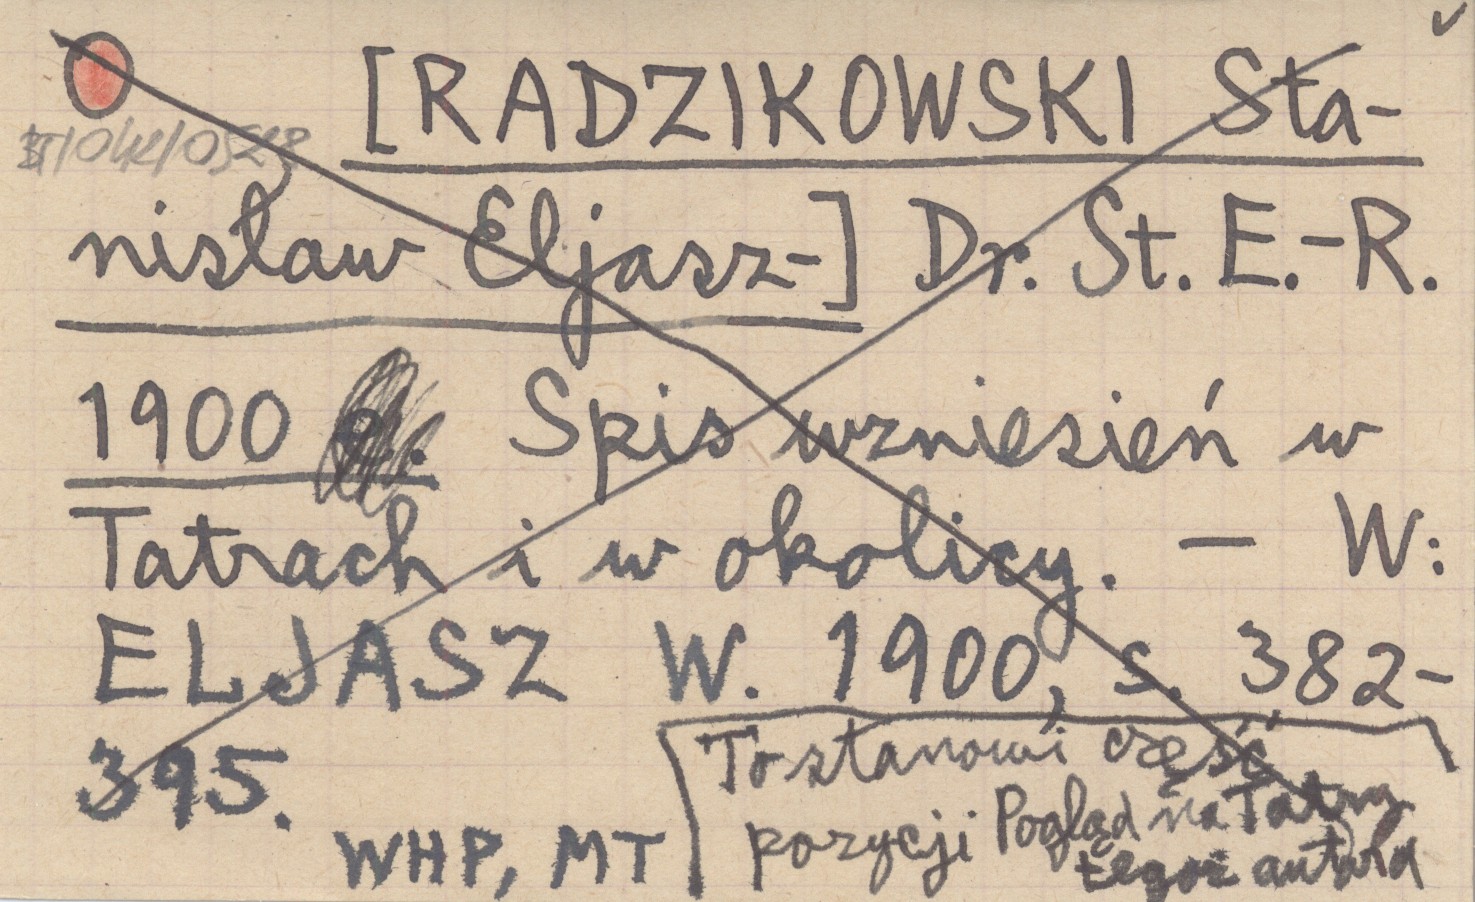 [RADZIKOWSKI Sta-
nisław Eljasz-] Dr. St. E.-R.
1900 Spis wzniesień w
Tatrach i w okolicy. — W:
ELJASZ W. 1900, s. 382-
395.
WHP, MT
To stanowi część
pozycji Pogląd na Tatry
tegoż autora